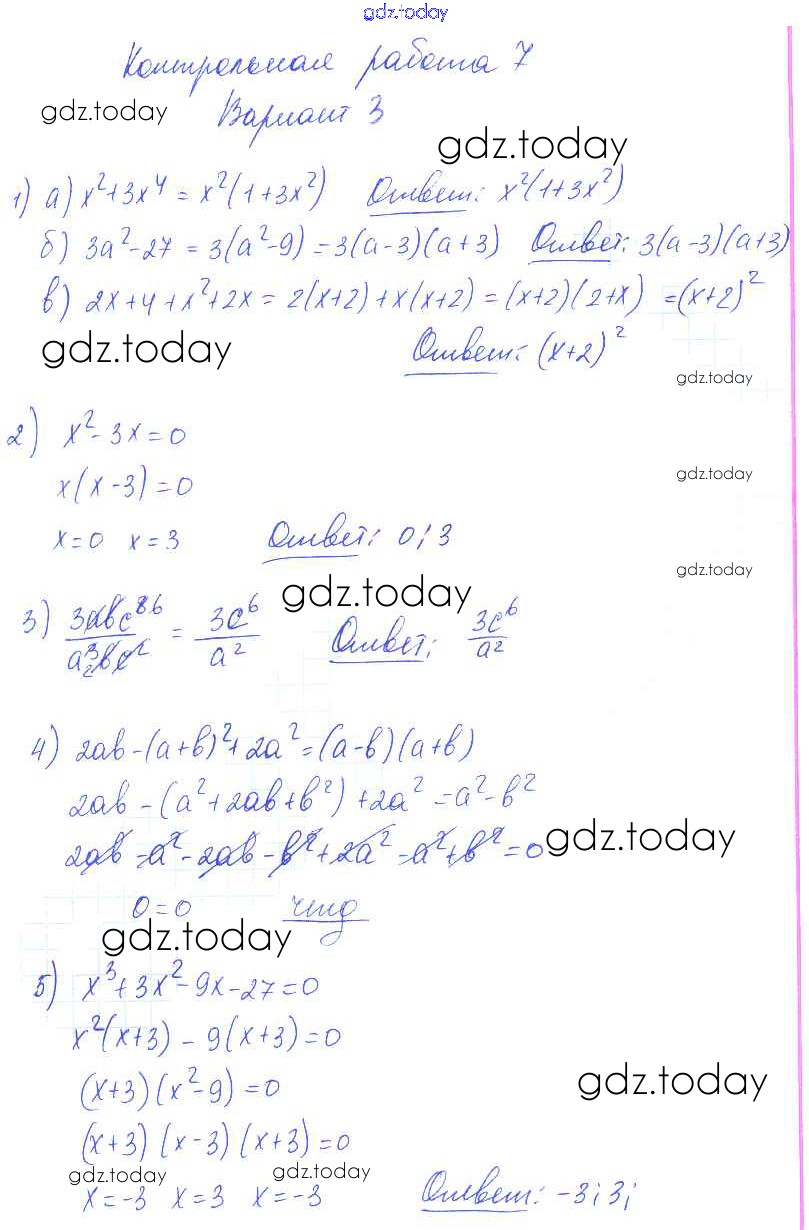 gdz.today
Контрольная работа 7
gdz.today Вариант 3
gdz.today
1) а) x²+3x⁴ = x²(1+3x²) Ответ: x²(1+3x²)
б) 3a²-27 = 3(a²-9) = 3(a-3)(a+3) Ответ: 3(a-3)(a+3)
в) 2x+4+x²+2x = 2(x+2)+x(x+2) = (x+2)(2+x) = (x+2)²
gdz.today Ответ: (x+2)²
gdz.today
2) x²-3x=0
x(x-3)=0 gdz.today
x=0 x=3 Ответ: 0; 3
gdz.today
gdz.today
3) 3abc⁸ ⁶/a³₂bc² = 3c⁶/a² Ответ: 3c⁶/a²
4) 2ab-(a+b)²+2a²=(a-b)(a+b)
2ab-(a²+2ab+b²)+2a²=a²-b²
2ab-a²-2ab-b²+2a²-a²+b²=0 gdz.today
0=0 чтд
gdz.today
5) x³+3x²-9x-27=0
x²(x+3)-9(x+3)=0
(x+3)(x²-9)=0 gdz.today
(x+3)(x-3)(x+3)=0
gdz.today gdz.today
x=-3 x=3 x=-3 Ответ: -3; 3;